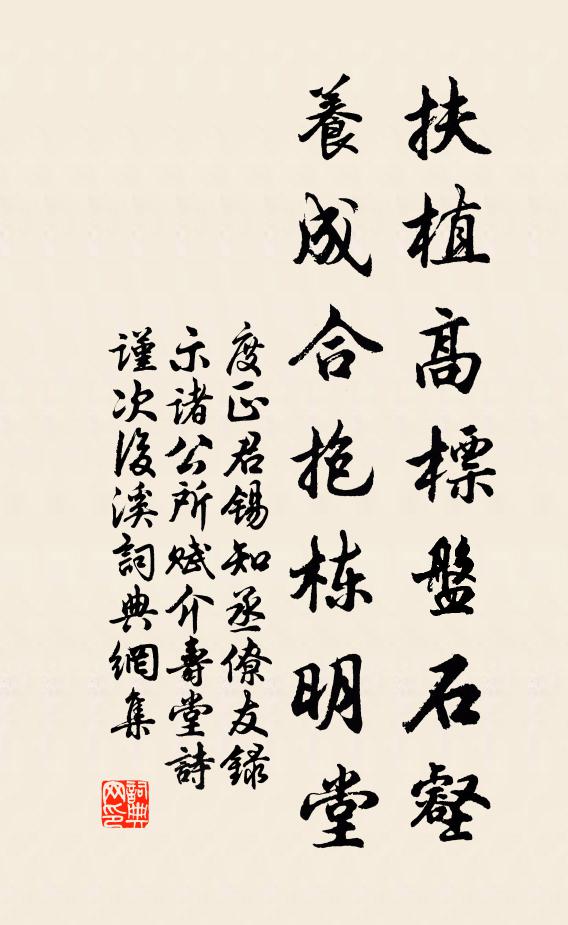 扶植高標盤石壑
養成合抱栋明堂
度正君锡知丞僚友録
示诸公所赋介壽堂詩
謹次後溪詞典網集
詞典网印